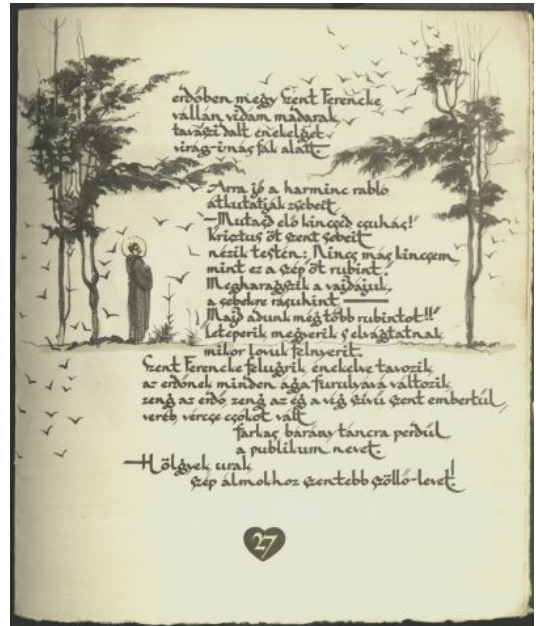 erdőben megy Szent Ferencke
vállán vidám madarak
tavaszi dalt énekelget
virág-inas fák alatt.
Arra jő a harminc rabló
átkutatják zsebeit
—Mutasd elő kincsed csuhás!
Krisztus öt szent sebeit
nézik testén: Nincs más kincsem
mint ez a szép öt rubint.
Megharagszik a vajdájuk,
a sebekre rásuhint —
Majd adunk még több rubintot!!
Leteperik megverik s elvágtatnak
mikor lovuk felnyerit.
Szent Ferencke felugrik énekelve távozik
az erdőnek minden ága furulyává változik
zeng az erdő, zeng az ég a víg szívű szent embertül,
veréb vércse csókot vált
farkas bárány táncra perdül
a publikum nevet.
—Hölgyek urak
szép álmokhoz szentebb szöllő-levet!
27